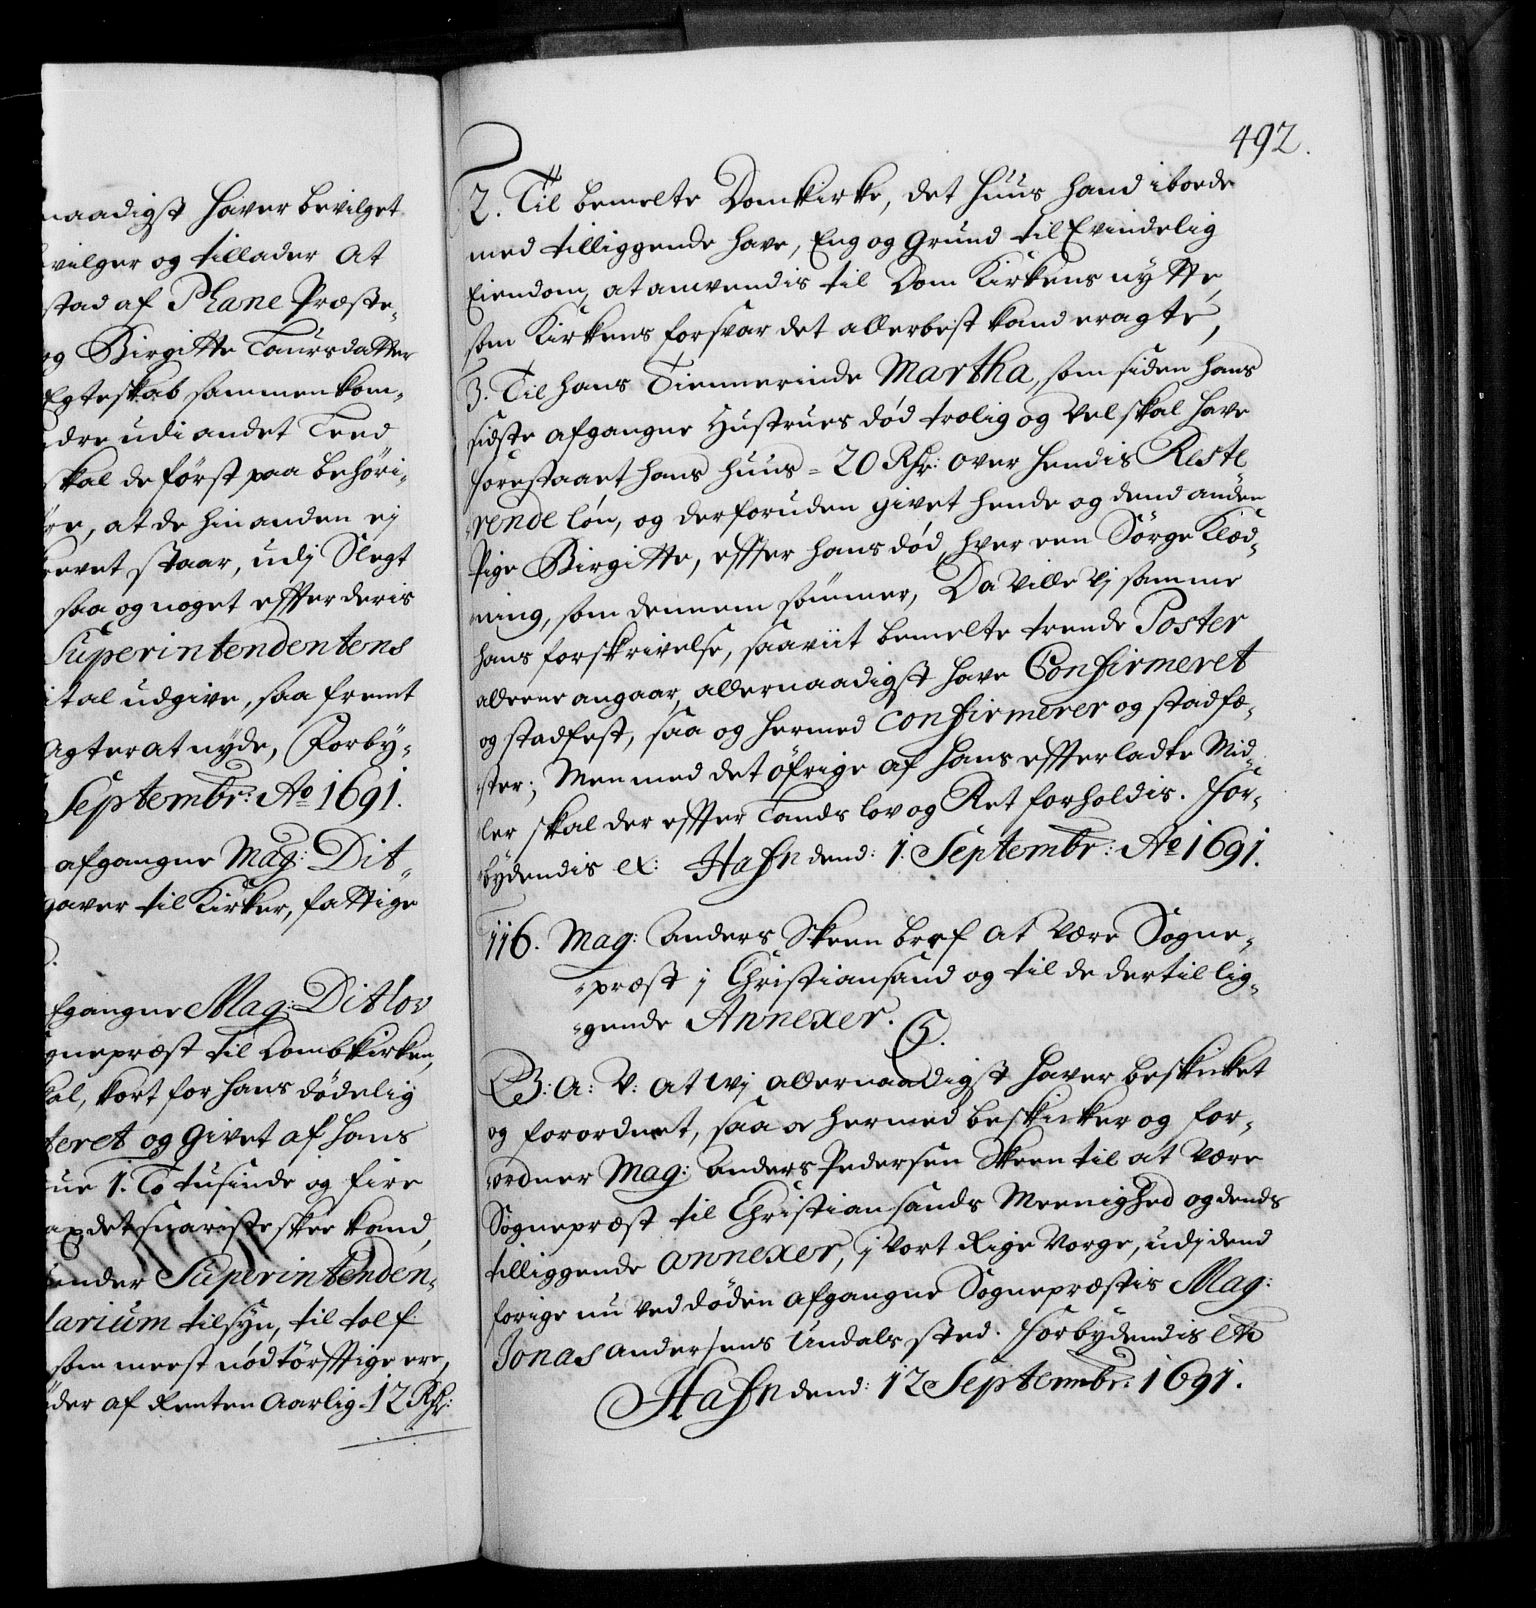 naadigst haver bevilget
vilger og tillader at
stad af Phane Præste„
og Birgitte Laursdatter
Egteskab sammenkom„
dre udi andet Leed
skal de först paa behöri„
re, at de hinanden ej
revet staar, udj Slegt
saa og noget effter deris
Superintendentens
ital udgive, saa fremt
agter at nyde, Forby„
Septembr: Ao 1691.
afgangne Mag: Dit„
gaver til Kirker, fattige
fgangne Mag: Ditlov
gnepræst til Dombkirken,
kal, kort for hans dödelig
teret og givet af hans
ue 1. To tusinde og fire
det snareste skee kand,
under Superintenden„
tarium tilsyn, til tolf
som meest nödtörfftige ere,
der af Renten Aarlig 12 Rdr:
492.
2. Til bemelte Domkirke, det huus hand iboede
med tilliggende have, Eng og grund til Evindelig
Eiendom, at anvendis til Dom Kirkens nytte,
som Kirkens forsvar det allerbest kand eragte,
3. Til hans Tiennerinde Martha, som siden hans
sidste afgangne Hustrues död trolig og vel skal have
forestaaet hans huus = 20 Rdr: over hendis Reste
„rende lön, og derforuden givet hende og dend anden
Pige Birgitte, effter hans död, hver een Sörge Klæd„
„ning, som dennem sömmer, Da ville vj samme
hans forskrivelse, saaviit bemelte trende Poster
alleene angaar, allernaadigst have Confirmeret
og stadfest, saa og hermed confirmerer og stadfæ„
„ster; Men med det öfrige af hans effterladte Mid„
„ler skal der effter Lands lov og Ret forholdis. For„
„bydendis etc: Hafn dend: 1. Septembr: Ao 1691.
116. Mag: Anders Skeen bref at være Sogne„
„præst j Christiansand og til de der til lig„
„gende Annexer.
C5.
G: A: V: at wj allernaadigst haver beskicket
og forordnet, saa oc hermed beskicker og for„
„ordner Mag: Anders Pedersen Skeen til at være
Sognepræst til Christiansands Meenighed og dends
tilliggende annexer, j vort Rige Norge, udj dend
forige nu ved döden afgangne Sognepræstis Mag:
Jonas Andersens Undals sted. Forbydendis etc
Hafn dend: 12 Septembr: 1691.